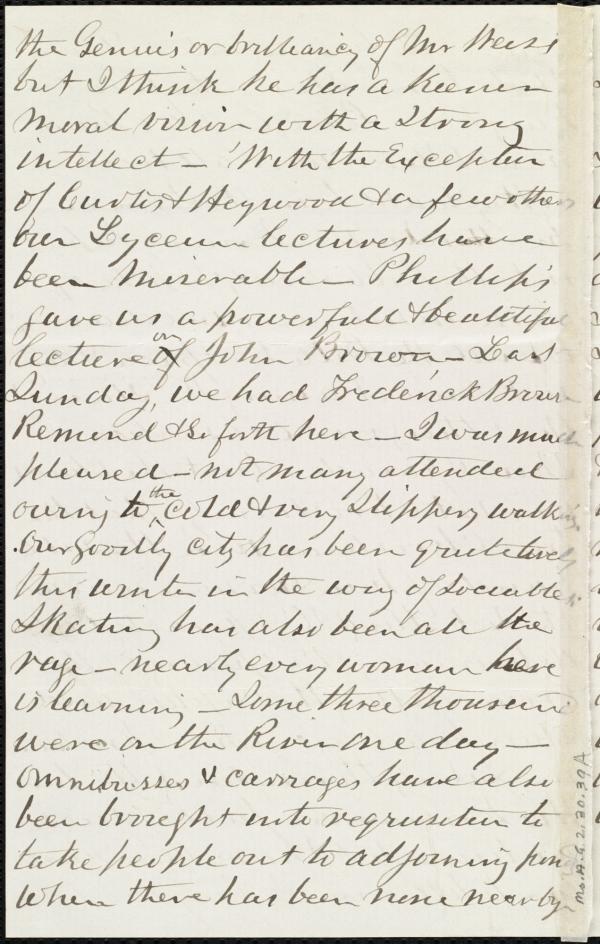 the Genius or brilliancy of Mr Weiss
but I think he has a keener
moral vision with a strong
intellect – With the Exception
of Curtis & Heywood & a few others
our Lyceum lectures have
been miserable – Phillips
gave us a powerfull & beautiful
lecture on of John Brown – Last
Sunday, we had Frederick Brown
Remond & so forth here – I was much
pleased – not many attended
owing to the cold & very slippery walking.
Our goodly city has been quite lively
this winter in the way of Sociables.
Skating has also been all the
rage – nearly every woman here
is learning – Some three thousand
were on the River one day –
Omnibusses & carriages have also
been brought into requisition to
take people out to adjoining pon
when there has been none near by
Ms.A.9.2.30.39A